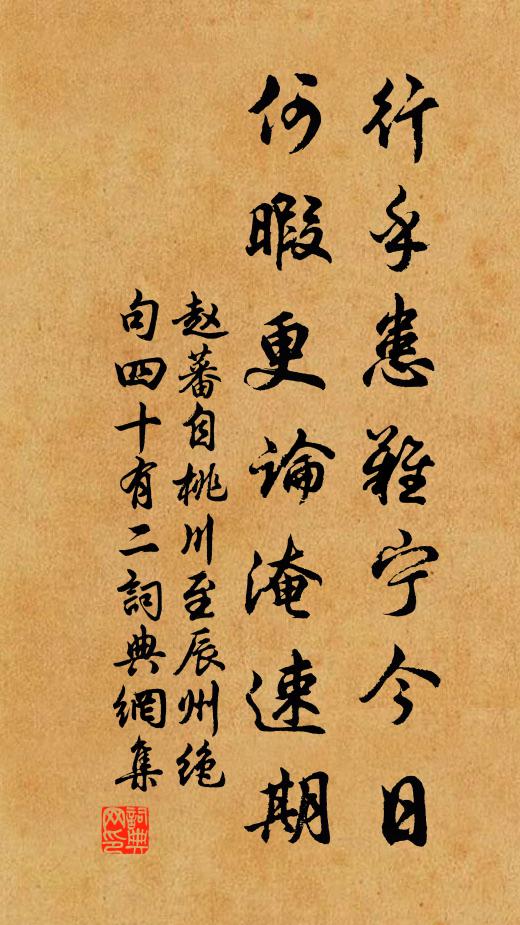 行乎患難宁今日
何暇更論淹速期
赵蕃自桃川至辰州绝
句四十有二詞典網集
詞典
网印